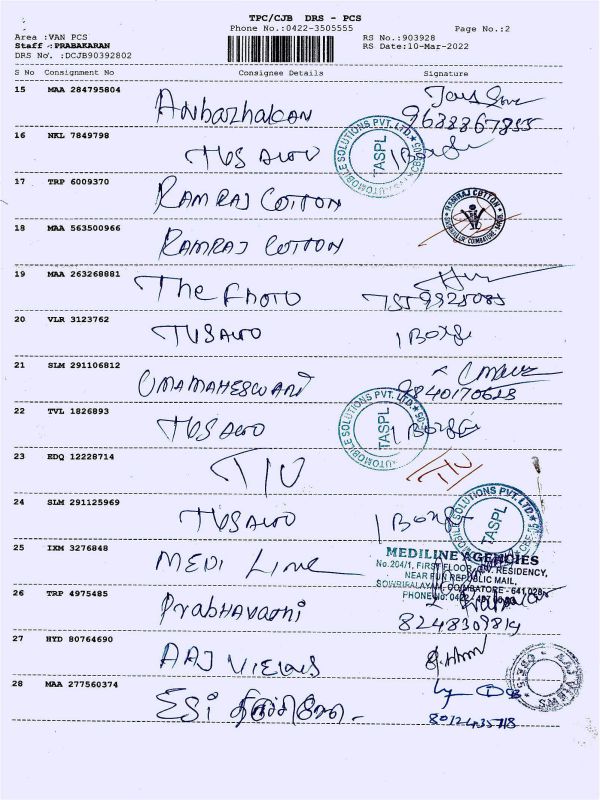 TPC/CJB DRS - PCS
Phone No.:0422-3505555
Page No.:2
Area :VAN PCS
RS No.:903928
Staff :PRABAKARAN
RS Date:10-Mar-2022
DRS No. :DCJB90392802
S No Consignment No Consignee Details Signature
15 MAA 284795804 Anbazhakan
9688867855
16 NKL 7849798 TVS Auto 1 Box
AUTOMOBILE SOLUTIONS PVT. LTD. TASPL
17 TRP 6009370 RAMRAJ COTTON
RAMRAJ COTTON
18 MAA 563500966 RAMRAJ COTTON
19 MAA 263268881 The Photo
20 VLR 3123762 TVS Auto 1 Box
21 SLM 291106812 UMAMAHESWARI
9840170628
22 TVL 1826893 TVS Auto 1 Box
AUTOMOBILE SOLUTIONS PVT. LTD. TASPL
23 EDQ 12228714
24 SLM 291125969 TVS Auto 1 Box
SOLUTIONS PVT. LTD. TASPL
25 IXM 3276848 MEDI Line
MEDILINE AGENCIES
No.204/1, FIRST FLOOR, RESIDENCY,
NEAR FUN REPUBLIC MAIL,
SOWRIPALAYAM, COIMBATORE - 641 028
PHONE No: 0422
26 TRP 4975485 Prabhavathi
8248309814
27 HYD 80764690 AAJ VIEWS
AAJ VIEWS
28 MAA 277560374 ESI